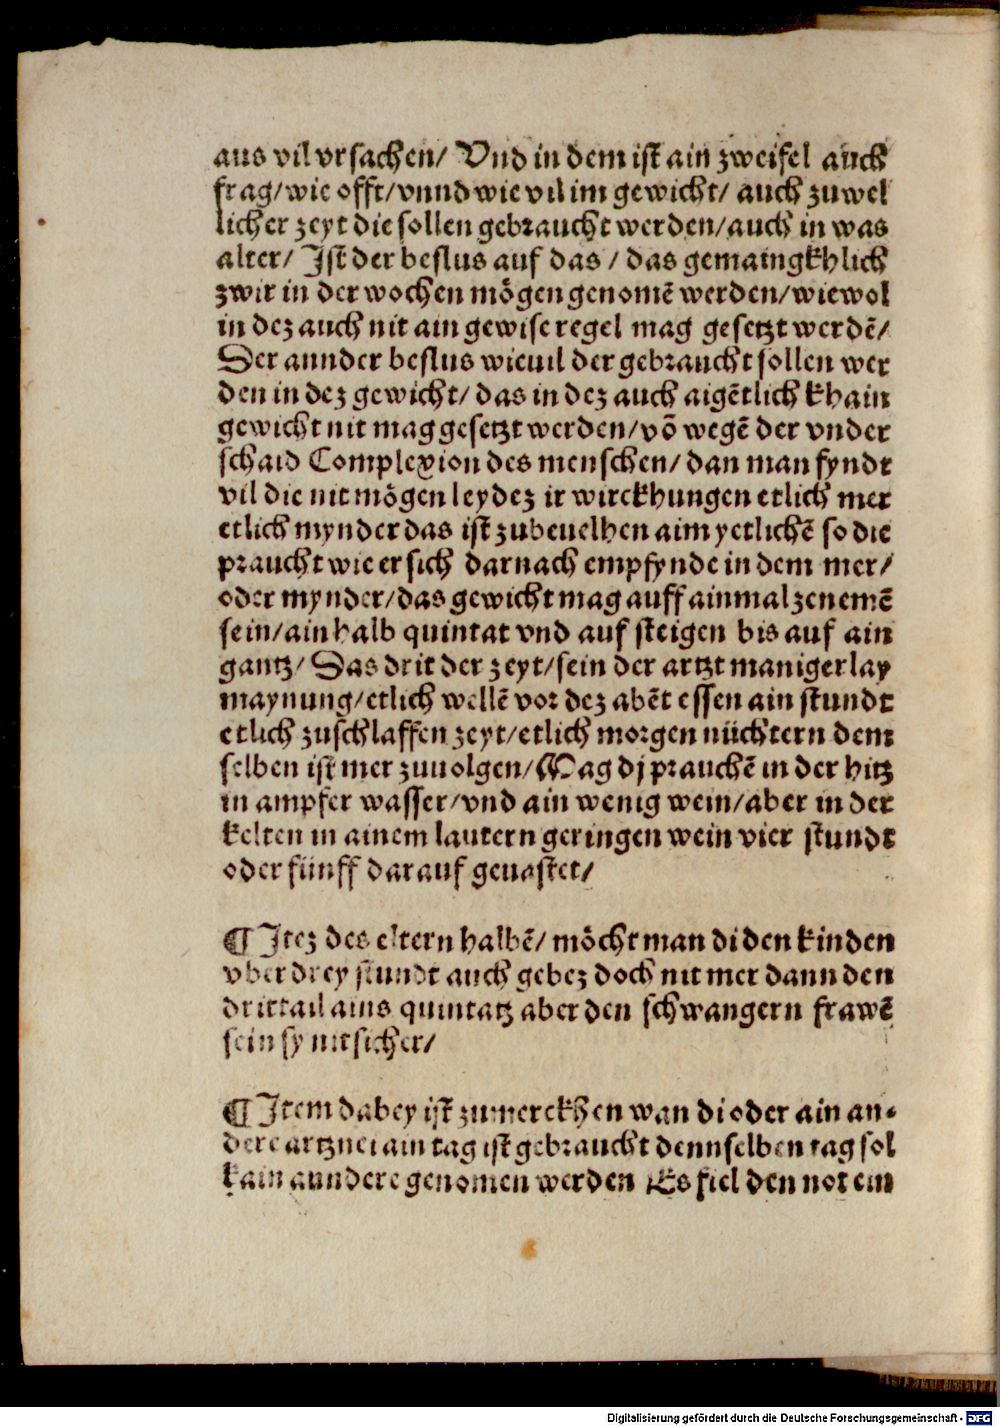 aus vil vrsachen/ Vnd in dem ist ain zweifel auch
frag/ wie offt/ vnnd wie vil im gewicht/ auch zu wel
licher zeyt die sollen gebraucht werden/ auch in was
alter/ Ist der beslus auf das/ das gemaingkhlich
zwir in der wochen mögen genomē werden/ wiewol
in dez auch nit ain gewise regel mag gesetzt werdē/
Der annder beslus wieuil der gebraucht sollen wer
den in dez gewicht/ das in dez auch aigētlich khain
gewicht nit mag gesetzt werden/ vō wegē der vnder
schaid Complexion des menschen/ dan man fyndt
vil die nit mögen leydez ir wirckhungen etlich mer
etlich mynder das ist zubeuelhen aim yetlichē so die
praucht wie er sich darnach empfynde in dem mer/
oder mynder/ das gewicht mag auff ainmal zenemē
sein/ ain halb quintat vnd auf steigen bis auf ain
gantz/ Das drit der zeyt/ sein der artzt manigerlay
maynung/ etlich wellē vor dez abēt essen ain stundt
etlich zuschlaffen zeyt/ etlich morgen nüchtern dem
selben ist mer zuuolgen/ Mag dj prauchē in der hitz
in ampfer wasser/ vnd ain wenig wein/ aber in der
kelten in ainem lautern geringen wein vier stundt
oder fünff darauf geuastet/
¶ Itez des eltern halbē/ möcht man di den kinden
vber drey stundt auch gebez doch nit mer dann den
drittail ains quintatz aber den schwangern frawē
sein sy nit sicher/
¶ Item dabey ist zumerckhen wan di oder ain an-
dere artznei ain tag ist gebraucht dennselben tag sol
kain anndere genomen werden Es fiel den not ein
Digitalisierung gefördert durch die Deutsche Forschungsgemeinschaft - DFG